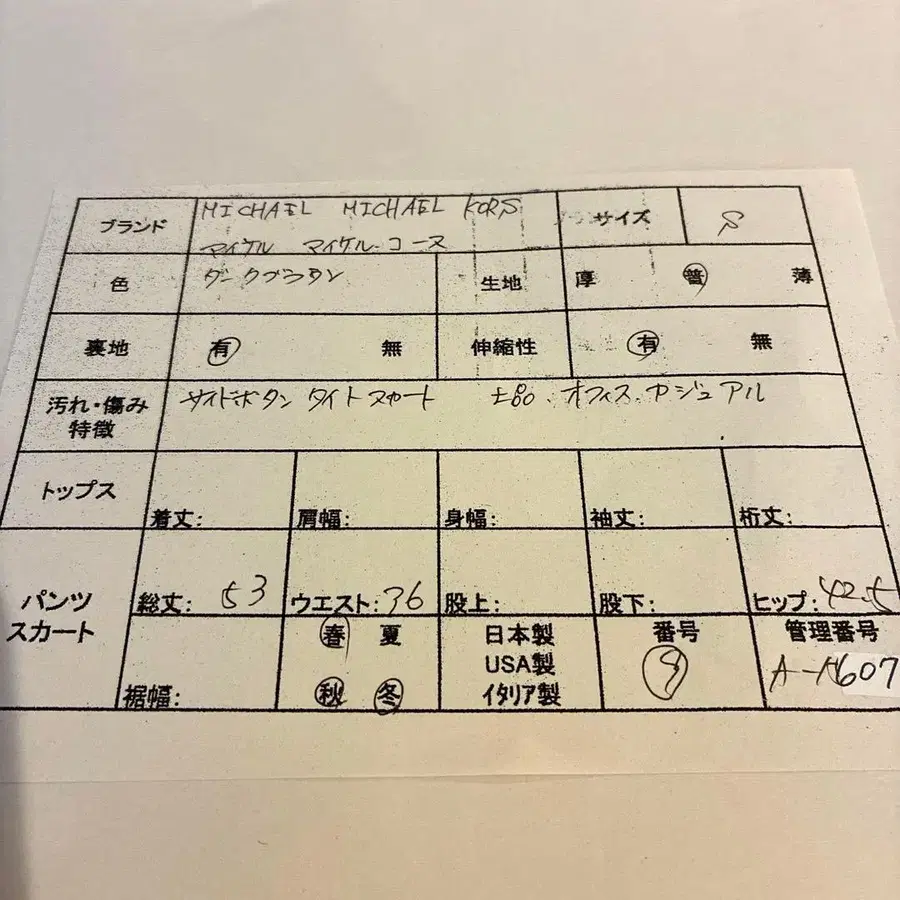 ブランド MICHAEL MICHAEL KORS サイズ S
マイケル マイケル・コース
色 ダークブラウン 生地 厚 普 薄
裏地 有 無 伸縮性 有 無
汚れ・傷み サイドボタン タイトスカート 上品、オフィス、カジュアル
特徴
トップス 着丈: 肩幅: 身幅: 袖丈: 裄丈:
パンツ 総丈: 53 ウエスト: 36 股上: 股下: ヒップ: 42.5
スカート 春 夏 日本製 番号 管理番号
USA製
裾幅: 秋 冬 イタリア製 607